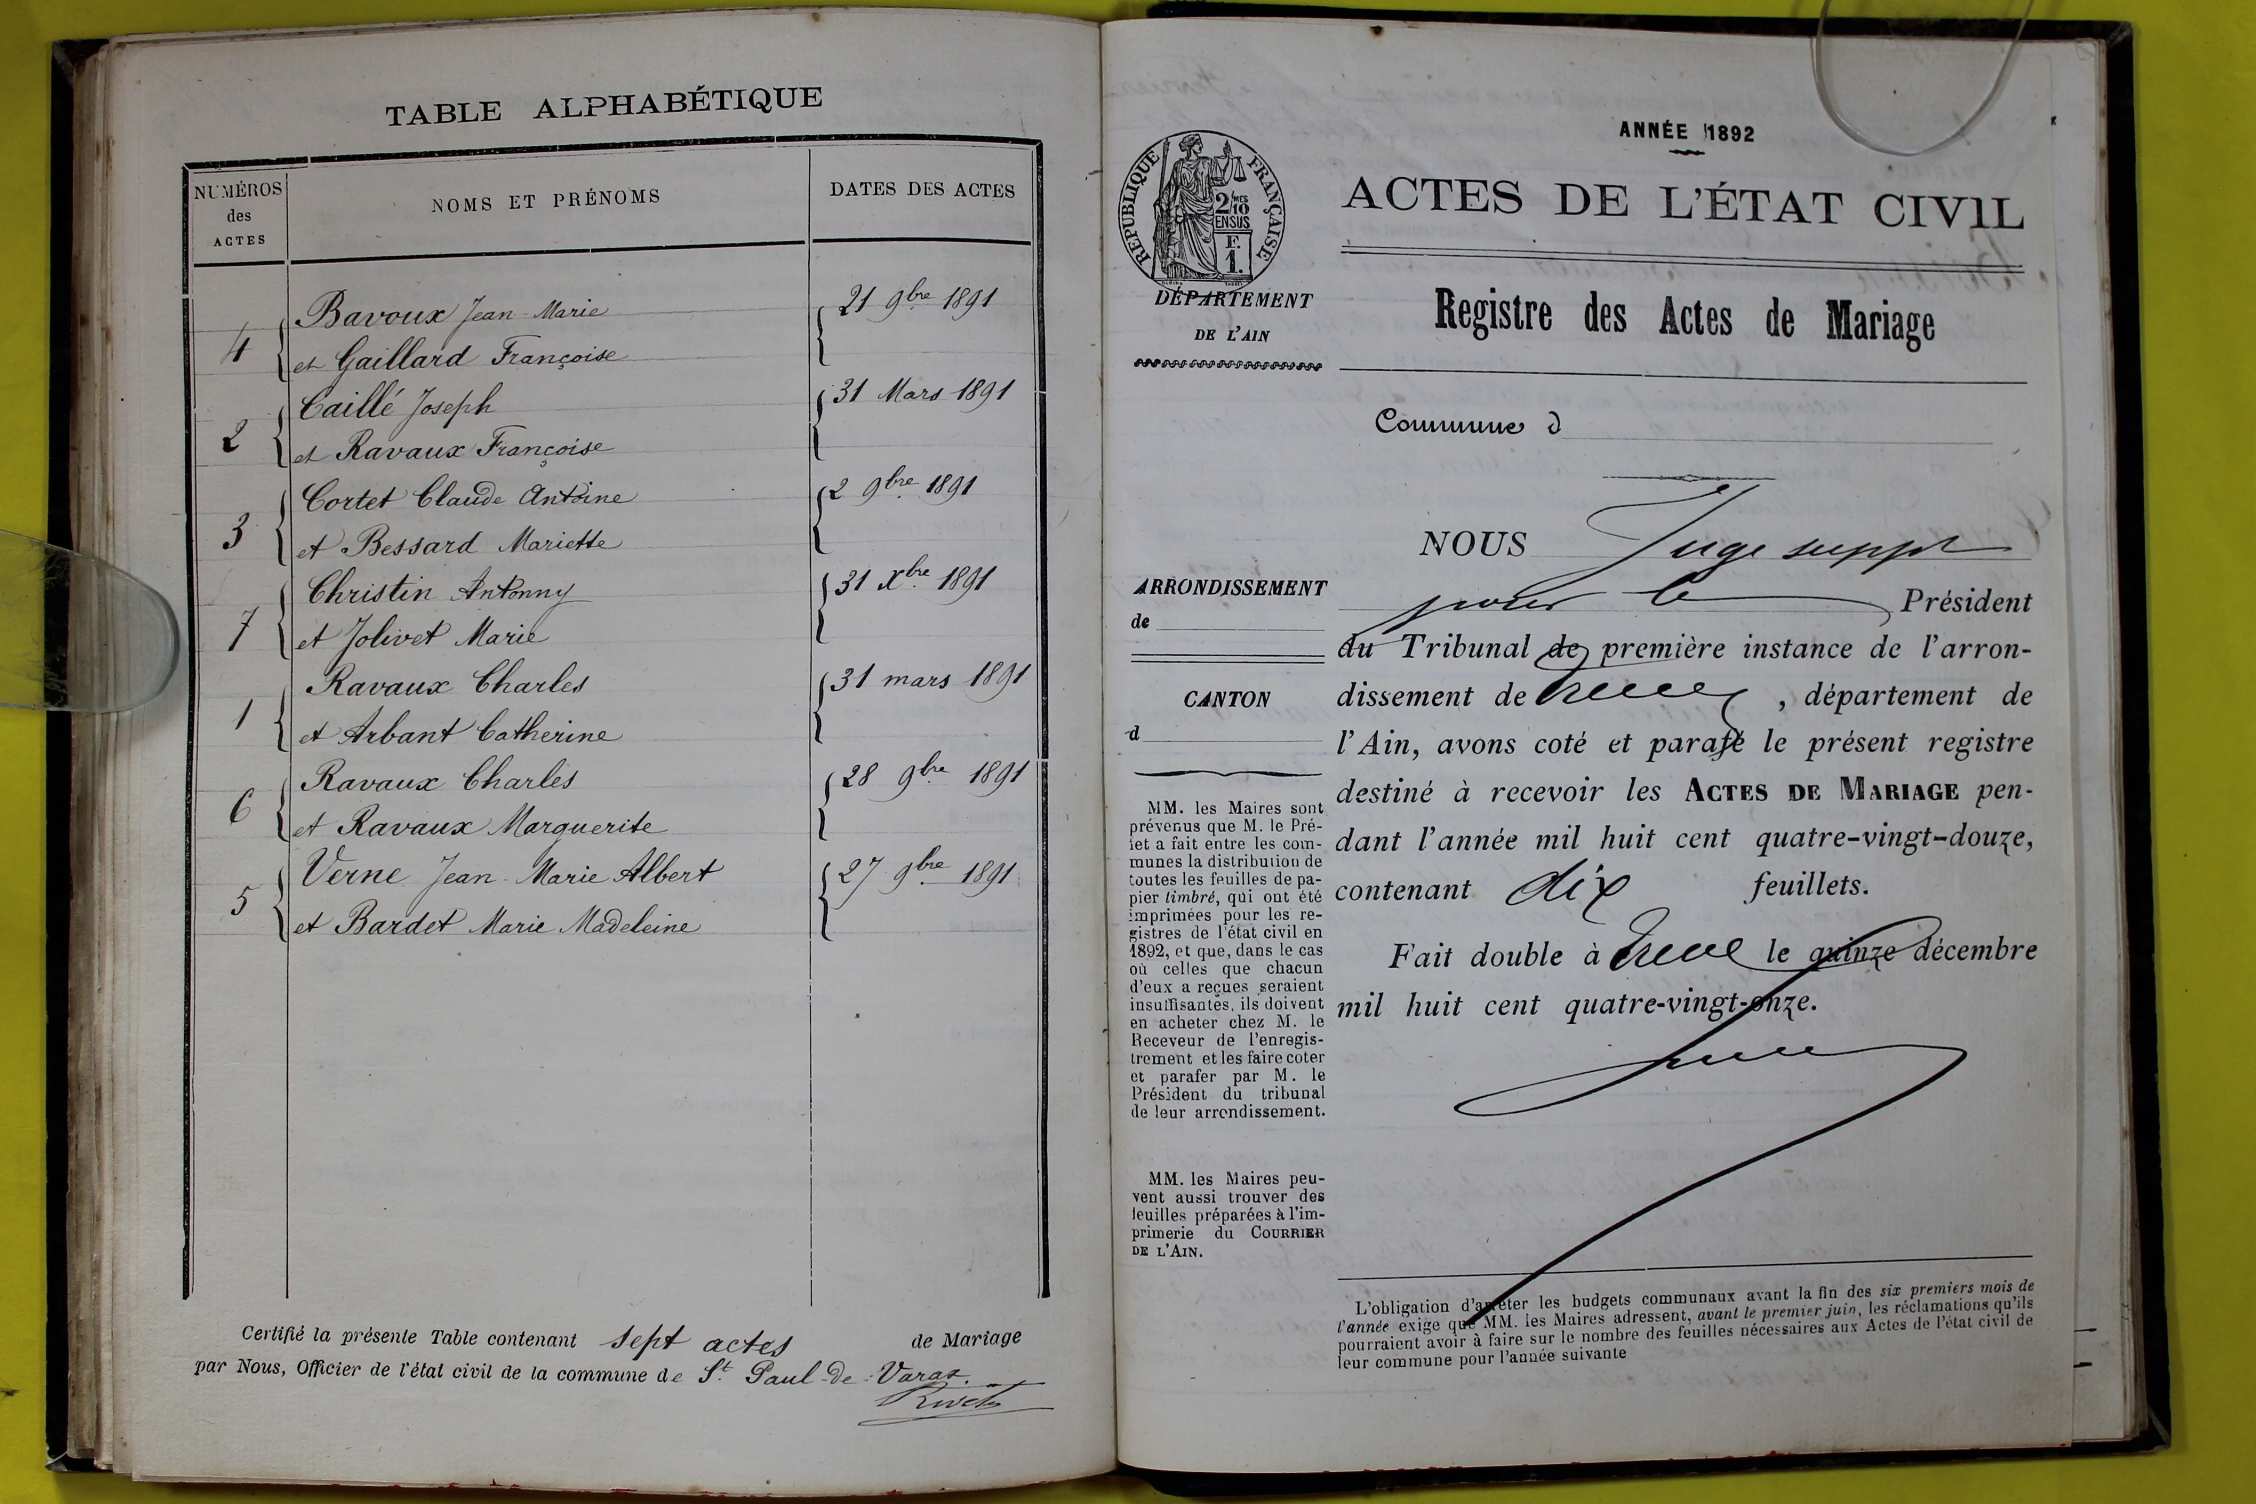 TABLE ALPHABÉTIQUE
NUMÉROS des ACTES
NOMS ET PRÉNOMS
DATES DES ACTES
4 Bavoux Jean-Marie 21 9bre 1891
et Gaillard Françoise
2 Caillé Joseph 31 Mars 1891
et Ravaux Françoise
3 Cortet Claude Antoine 2 9bre 1891
et Bessard Mariette
7 Christin Antonny 31 Xbre 1891
et Jolivet Marie
1 Ravaux Charles 31 mars 1891
et Arbant Catherine
6 Ravaux Charles 28 9bre 1891
et Ravaux Marguerite
5 Verne Jean-Marie Albert 27 9bre 1891
et Bardet Marie Madeleine
Certifié la présente Table contenant sept actes de Mariage
par Nous, Officier de l'état civil de la commune de St Paul-de-Varax.
ANNÉE 1892
RÉPUBLIQUE FRANÇAISE
2/10MES
EN SUS
F.
1.
ACTES DE L'ÉTAT CIVIL
DÉPARTEMENT
DE L'AIN
Registre des Actes de Mariage
Commune d
ARRONDISSEMENT
de
CANTON
d
MM. les Maires sont
prévenus que M. le Pré-
fet a fait entre les com-
munes la distribution de
toutes les feuilles de pa-
pier timbré, qui ont été
imprimées pour les re-
gistres de l'état civil en
1892, et que, dans le cas
où celles que chacun
d'eux a reçues seraient
insuffisantes, ils doivent
en acheter chez M. le
Receveur de l'enregis-
trement et les faire coter
et parafer par M. le
Président du tribunal
de leur arrondissement.
MM. les Maires peu-
vent aussi trouver des
feuilles préparées à l'im-
primerie du COURRIER
DE L'AIN.
NOUS Juge suppt
pour le Président
du Tribunal de première instance de l'arron-
dissement de , département de
l'Ain, avons coté et parafé le présent registre
destiné à recevoir les ACTES DE MARIAGE pen-
dant l'année mil huit cent quatre-vingt-douze,
contenant dix feuillets.
Fait double à le quinze décembre
mil huit cent quatre-vingt-onze.
L'obligation d'arrêter les budgets communaux avant la fin des six premiers mois de
l'année exige que MM. les Maires adressent, avant le premier juin, les réclamations qu'ils
pourraient avoir à faire sur le nombre des feuilles nécessaires aux Actes de l'état civil de
leur commune pour l'année suivante